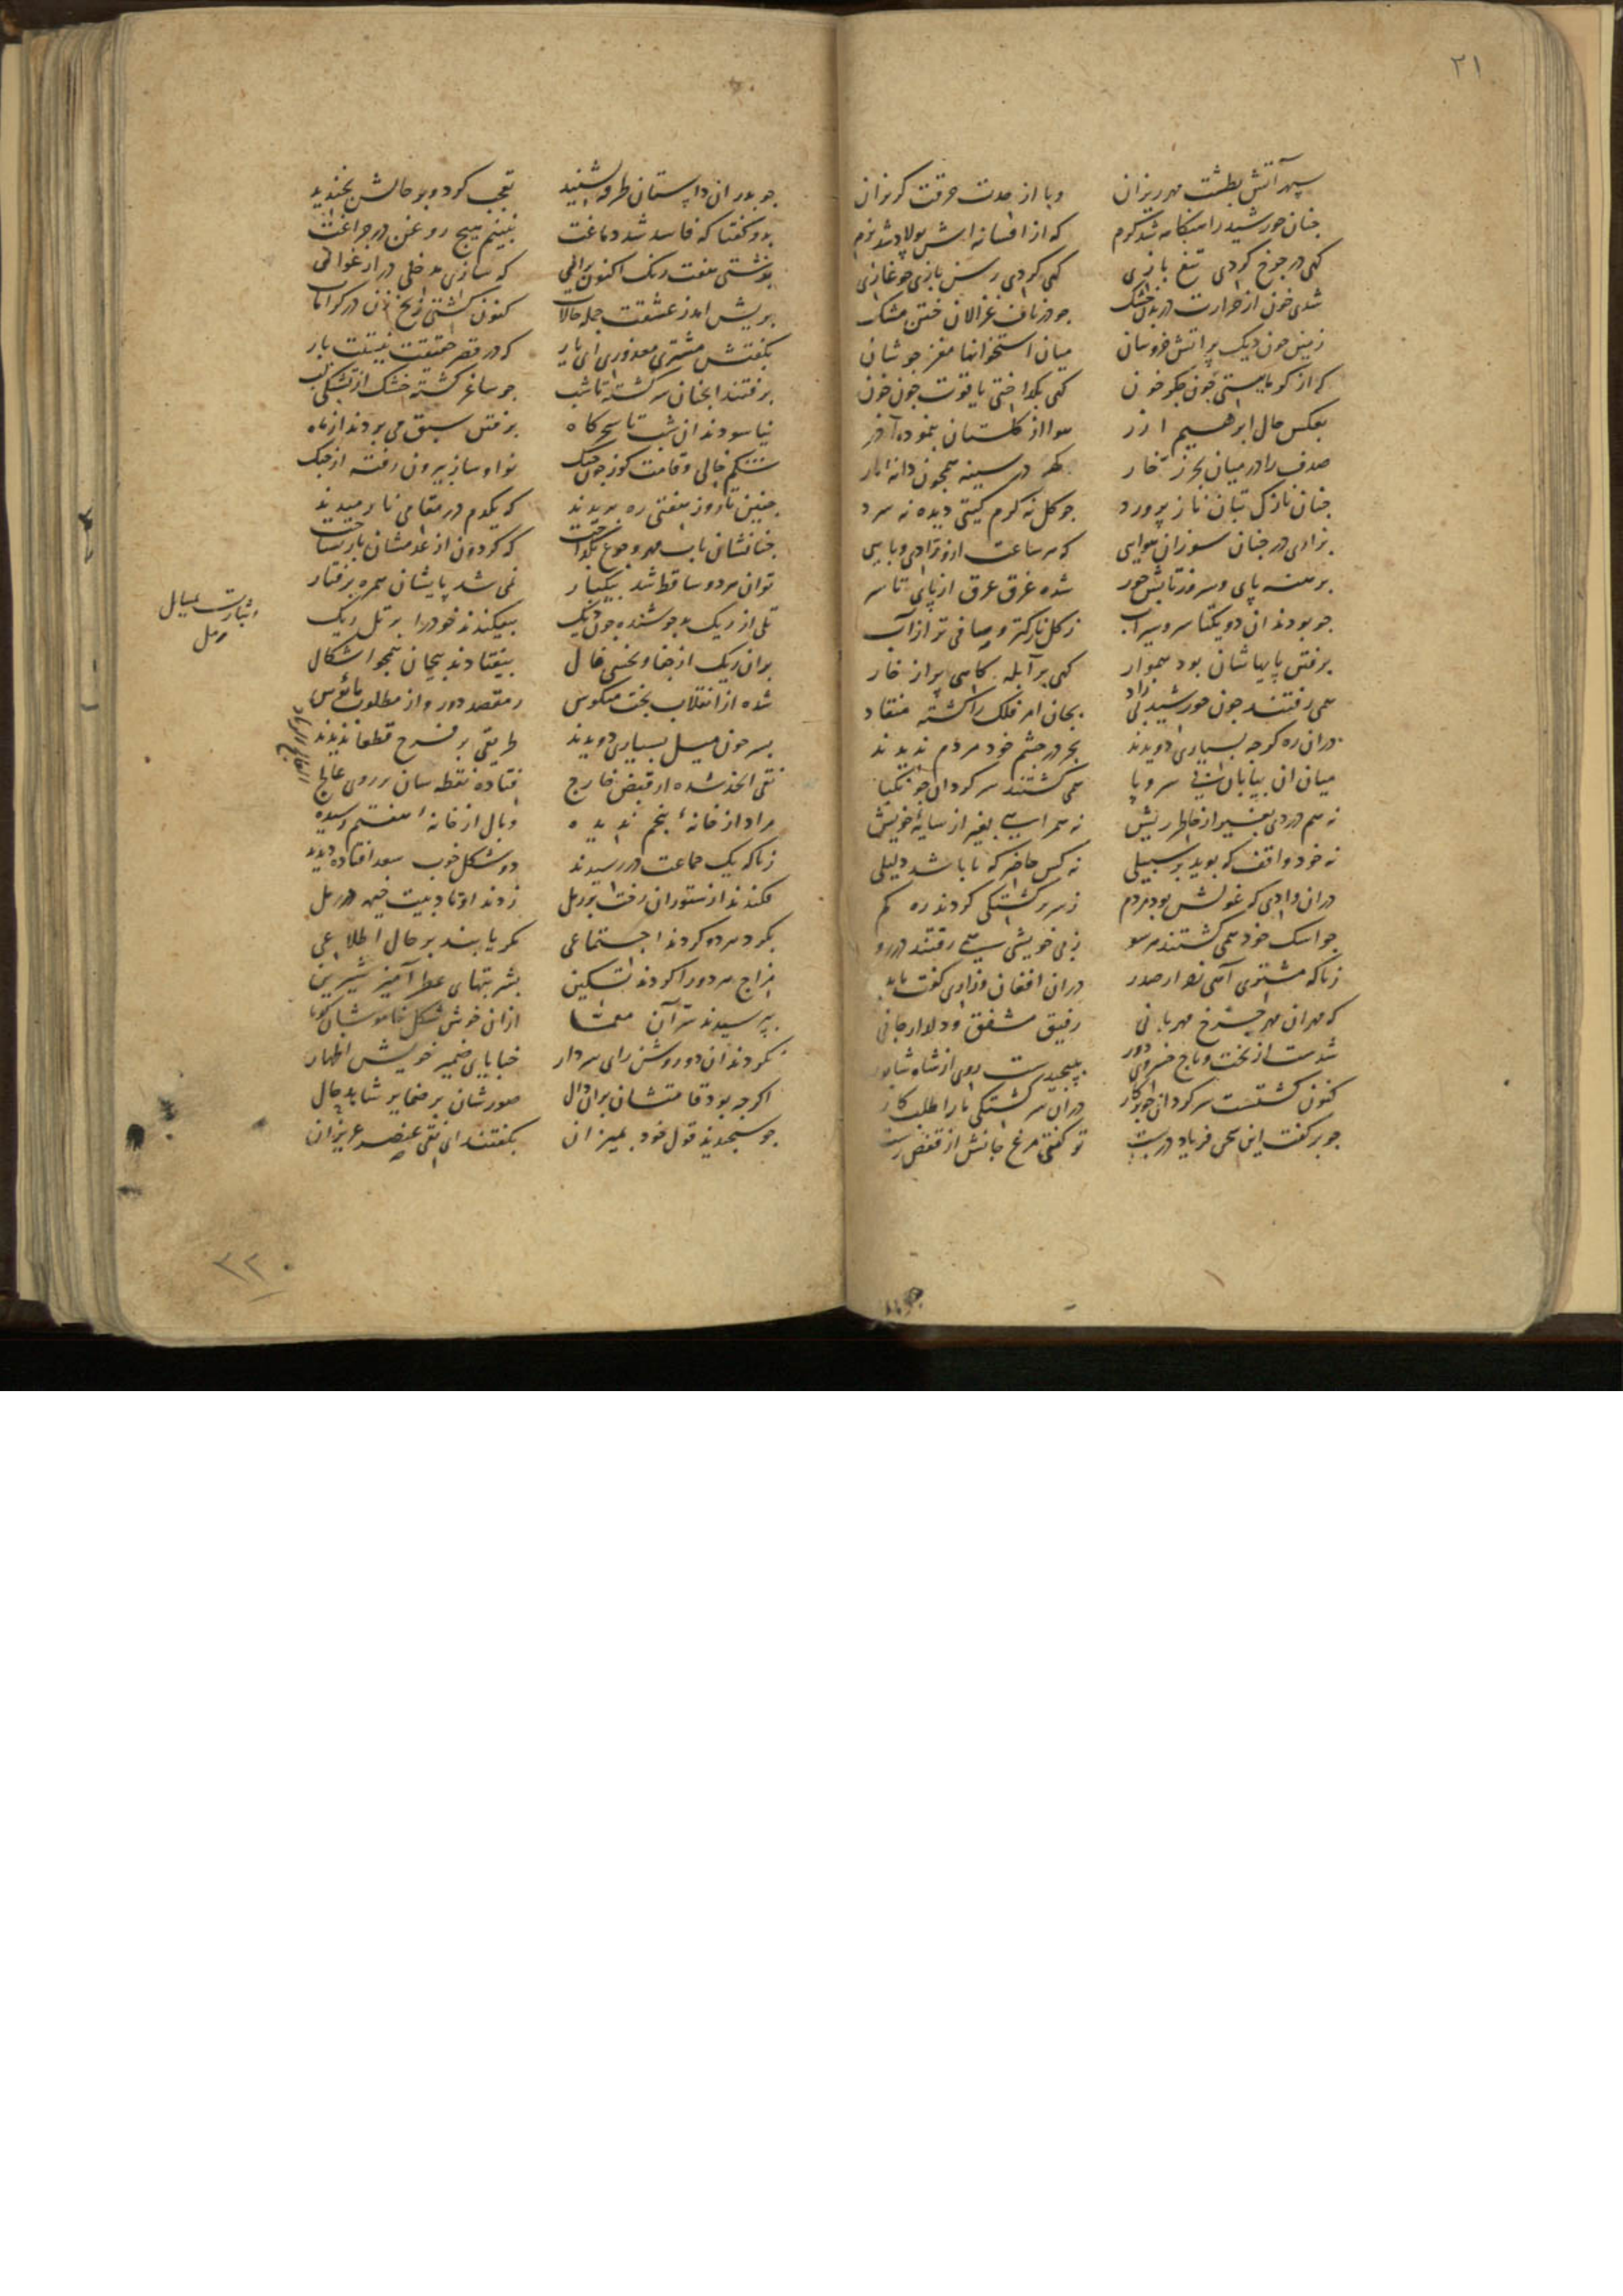 ۲۱
سپهر آتش بطشت مهر ریزان وبا از حدت حرقت کریزان
جنان خورشید را هنکامه شد کرم که از افسانه اش پولاد شد نرم
کهی در جرخ کردی تیغ بازی کهی کردی رسن بازی جو غازی
شدی خون از حرارت در بدن خشک جو در ناف غزالان ختن مشک
زمین جون دیک بر اتش خروشان میان استخوانها مغز جوشان
که از کوه بایستی جون جکر خون کهی بکداختی یاقوت جون خون
بعکس حال ابرهیم ازر هوا از کلستان بنموده آذر
صدف را در میان بحر زخار کهر در سینه همجون دانه نار
جنان نازک تنان ناز پرورد جو کل نه کرم کیتی دیده نه سرد
بزادی در جنان سوزان هوایی که هر ساعت ازو زادی وبایی
برهنه پای و سر در تابش خور شده غرق عرق از پای تا سر
جو بودند ان دو یکتا سرو سیراب ز کل نازکتر و صافی تر از آب
برفتن پایهاشان بود هموار کهی بر آبله کاهی بر از خار
همی رفتند جون خورشید بی زاد بجان امر فلک را کشته منقاد
دران ره کرجه بسیاری دویدند بجز در جشم خود مردم ندیدند
میان ان بیابان بی سر و پا همی کشتند سر کردان جو نکبا
نه هم دردی بغیر از خاطر ریش نه همراهی بغیر از سایهٔ خویش
نه خود واقف که بوید بر سبیلی نه کس حاضر که تا باشد دلیلی
دران وادی که غولش بود مردم ز سر کشتکی کردند ره کم
جو اشک خود همی کشتند هر سو ز بی خویشی همی رفتند در رو
زناکه مشتری آهی زد از صدر دران افغان و زاری کفت با بدر
که مهران مهر جرخ مهربانی رفیق مشفق و دلدار جانی
شدست از تخت و تاج خسروی دور بپیجیدست روی از شاه شابور
کنون کشتست سر کردان جو برکار دران سر کشتکی ما را طلب کار
جو بر کفت این سخن فریاد در بست تو کفتی مرغ جانش از قفص رست
جو بدر ان داستان طرفه بشنید تعجب کرد و بر حالش بخندید
بدو کفتا که فاسد شد دماغت نبینم هیج روغن در جراغت
بهشتی هفت رنک اکنون برانی که سازی مدخلی در ارغوانی
پریش امد ز عشقت جمله حالات کنون کشتی زنخ زن در کرامات
بکفتش مشتری معذوری ای یار که در قصر حقیقت نیستت بار
برفتند انجنان سر کشته تا شب جو ساغر کشته خشک از تشنکی لب
نیاسودند ان شب تا سحرکاه برفتن سبق می بردند از ماه
شکم خالی و قامت کوز جون جنک نوا و ساز بیرون رفته از جنک
جنین تا روز هفتی ره بریدند که یکدم در مقامی نارمیدند
جنانشان تاب مهر و جوع بکداخت که کردون از عدمشان باز نشناخت
توان هر دو ساقط شد بیکبار نمی شد پایشان همره برفتار
تلی از ریک بد جوشنده جون دیک بیفکندند خود را بر تل ریک
بران ریک از جفا و نحسی فال بیفتادند بیجان همجو اشکال
شده از انقلاب بخت منکوس ز مقصد دور و از مطلوب مایوس
بسر جون میل بسیاری دویدند طریقی بر فرح قطعا ندیدند
نقی الخد شده از قبض خارج فتاده نقطه سان بر روی عالج
مراد از خانهٔ پنجم ندیده وبال از خانهٔ هفتم رسیده
زناکه یک جماعت در رسیدند دو شکل خوب سعد افتاده دیدند
فکندند از ستوران رخت بر رمل زدند اوتاد بیت خیمه در رمل
بکرد هر دو کردند اجتماعی مکر یابند بر حال اطلاعی
مزاج هر دو را کردند تسکین بشربتهای عطر آمیز شیرین
بپرسیدند سر آن معما ازان خوش شکل خاموشان کویا
نکردند ان دو روشن رای سردار خبایای ضمیر خویش اظهار
اکرجه بود قامتشان بران دال صورشان بر ضمایر شاهد حال
جو سنجیدند قول خود بمیزان بکفتند ای نقی عنصر عزیزان
رمل
۳۲